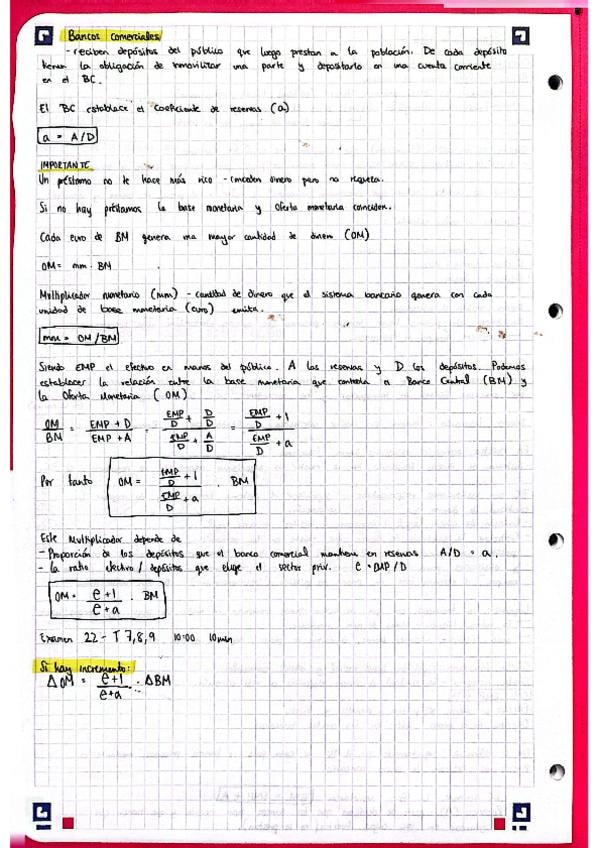 Bancos comerciales
- reciben depósitos del público que luego prestan a la población. De cada depósito
tienen la obligación de inmovilizar una parte y depositarlo en una cuenta corriente
en el BC.
El BC establece el coeficiente de reservas (a)
a = A/D
IMPORTANTE
Un préstamo no te hace más rico - conceden dinero pero no regalan.
Si no hay préstamos la base monetaria y oferta monetaria coinciden.
Cada euro de BM genera una mayor cantidad de dinero (OM)
OM = mm · BM
Multiplicador monetario (mm) - cantidad de dinero que el sistema bancario genera con cada
unidad de base monetaria (euro) emitida.
mm = OM/BM
Siendo EMP el efectivo en manos del público. A las reservas y D los depósitos. Podemos
establecer la relación entre la base monetaria que controla el Banco Central (BM) y
la Oferta Monetaria (OM)
OM/BM = (EMP + D)/(EMP + A) = (EMP/D + D/D)/(EMP/D + A/D) = (EMP/D + 1)/(EMP/D + a)
Por tanto OM = (EMP/D + 1)/(EMP/D + a) · BM
Este Multiplicador depende de
- Proporción de los depósitos que el banco comercial mantiene en reservas A/D = a.
- La ratio efectivo / depósitos que elige el sector priv. e = EMP/D
OM = (e+1)/(e+a) · BM
Examen 22 - T 7,8,9 10:00 10min
Si hay incremento:
ΔOM = (e+1)/(e+a) · ΔBM